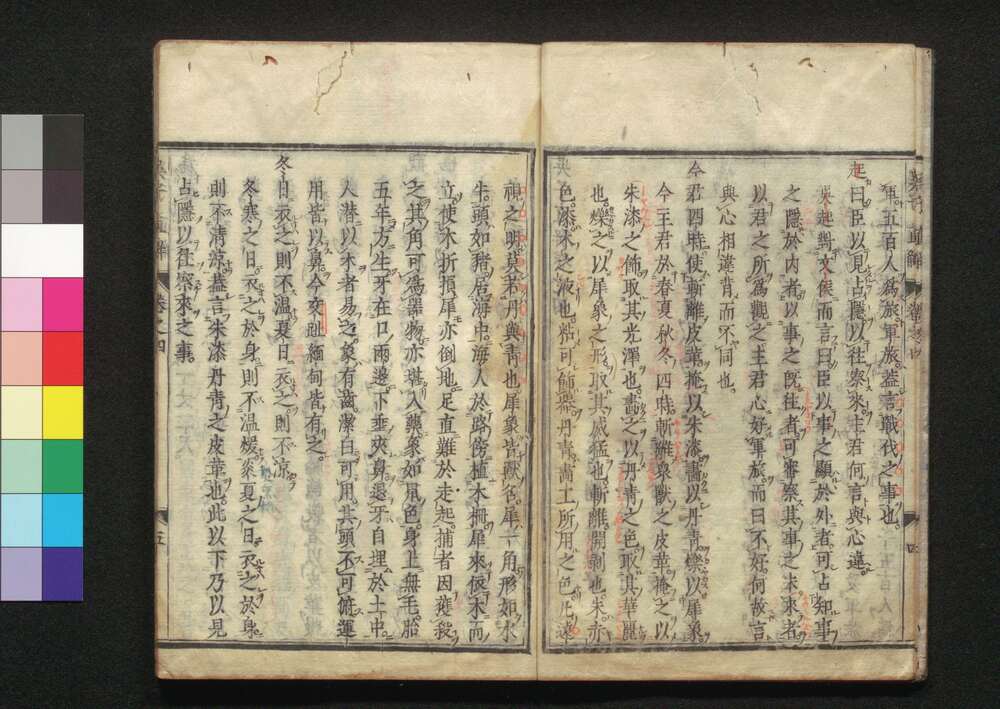 軍五百人爲旅軍旅蓋言戰伐之事也
起曰臣以見占隱以往察來主君何言與心違
吳起對文侯而言曰臣以事之顯於外者可占知事
之隱於内者以事之既往者可審察其事之未來者
以君之所爲觀之主君心好軍旅而曰不好何故言
與心相違背而不同也
今君四時使斬離皮革掩以朱漆畫以丹青爍以犀象
今主君於春夏秋冬四時斬離衆獸之皮革掩之以
朱漆之飾取其光澤也畫之以丹青之色取其華麗
也爍之以犀象之形取其威猛也斬離開剝也朱赤
色漆木之液也粘可飾器丹青畫工所用之色
神之明莫若丹與青也犀象皆獸名犀一角形如水
牛頭如豬居海中海人於路傍植木柵犀來倚木而
立使木折損犀亦倒地足直難於走起捕者因殺
之其角可爲器物亦堪入藥象如鼠色身上無毛胎
五年方生牙在口兩邊下垂夾鼻退牙自埋於土中
人潜以木者易之象有齒潔白可用其頭不可俯運
用皆以鼻今交趾緬甸皆有之
冬日衣之則不温夏日衣之則不凉
冬寒之日衣之於身則不温煖炎夏之日衣之於身
則不清凉蓋言朱漆丹青之皮革也此以下乃以見
占隱以往察來之事
卷之四
五